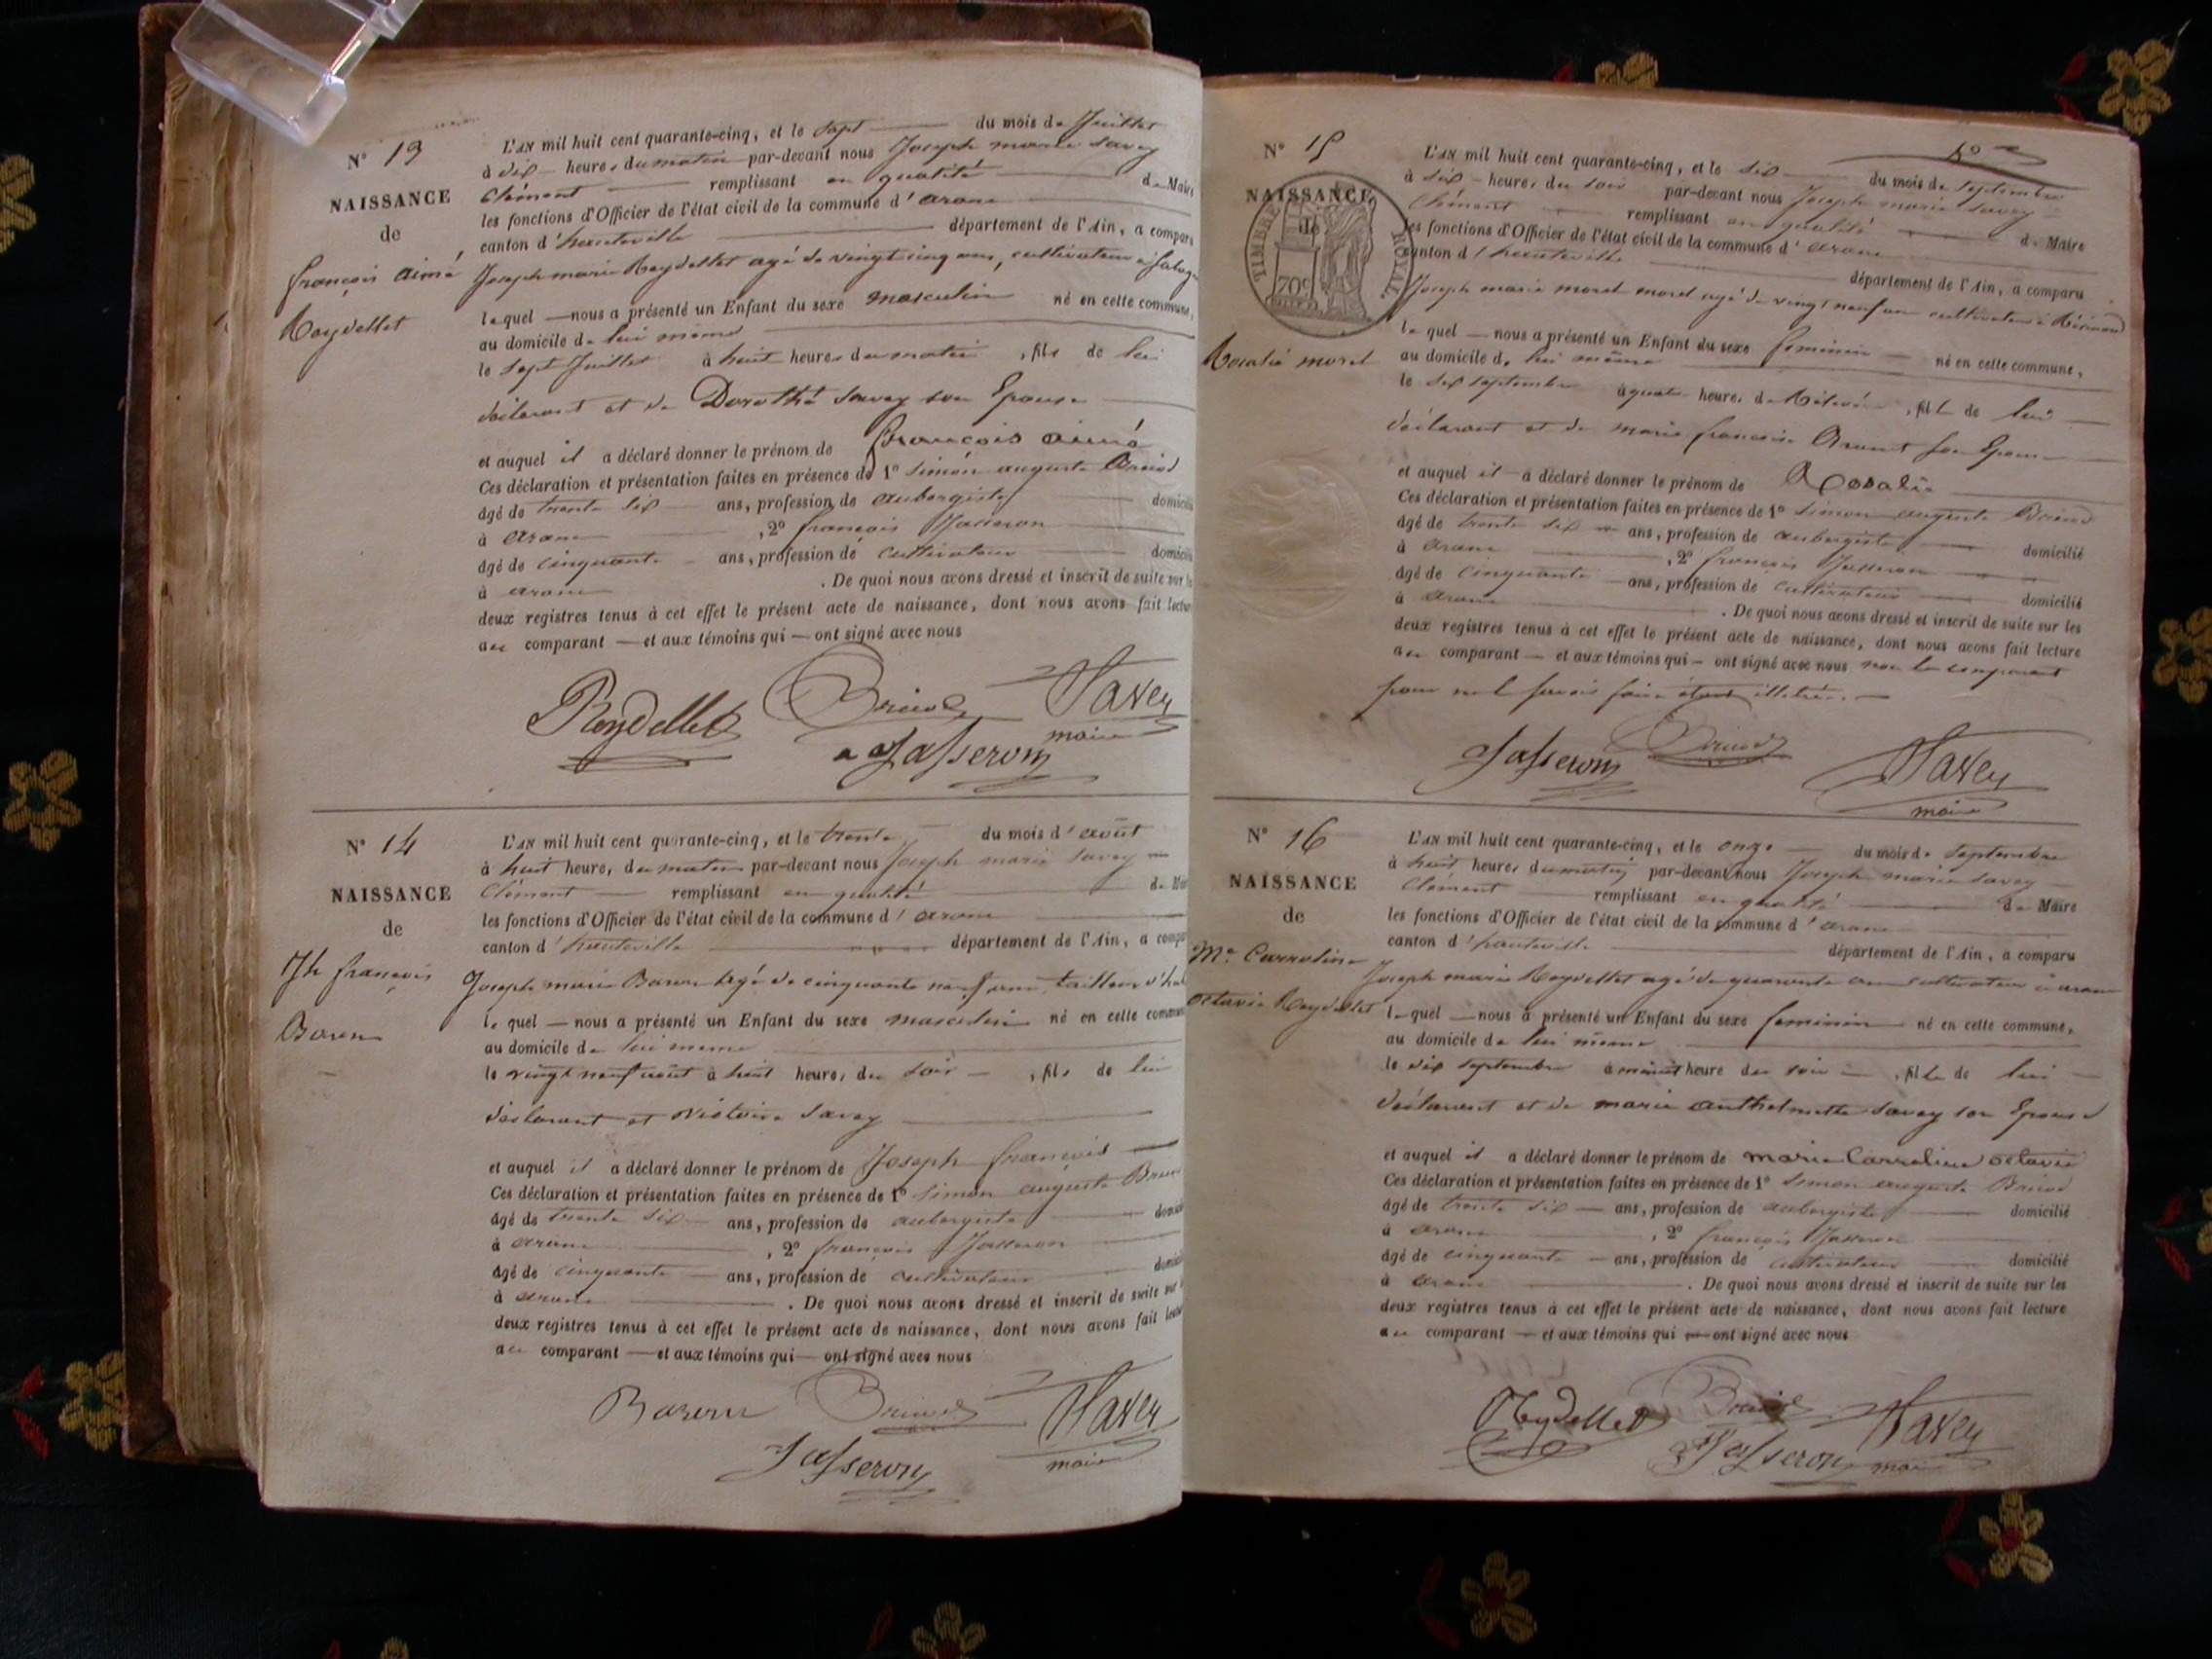 N° 13
NAISSANCE
de
françois aimé
Reydellet
L'AN mil huit cent quarante-cinq, et le sept du mois de Juillet
à dix heures du matin par-devant nous Joseph marie Savey
Clément remplissant en qualité de Maire
les fonctions d'Officier de l'état civil de la commune d'aranc
canton d'hauteville département de l'Ain, a comparu
Joseph marie Reydellet agé de vingt cinq ans, cultivateur à
lequel nous a présenté un Enfant du sexe masculin né en cette commune,
au domicile de lui même
le sept Juillet à huit heures du matin, fils de lui
déclarant et de Dorothé Savey son Epouse
et auquel il a déclaré donner le prénom de françois aimé
Ces déclaration et présentation faites en présence de 1° Simon auguste Brisod
âgé de trente six ans, profession de aubergiste domicilié
à aranc, 2° françois Jasseron
âgé de cinquante ans, profession de cultivateur domicilié
à aranc. De quoi nous avons dressé et inscrit de suite sur les
deux registres tenus à cet effet le présent acte de naissance, dont nous avons fait lecture
au comparant et aux témoins qui ont signé avec nous
Reydellet Savey
maire
Jasseron
N° 14
NAISSANCE
de
Jh françois
L'AN mil huit cent quarante-cinq, et le trente du mois d'août
à huit heures du matin par-devant nous Joseph marie Savey
Clément remplissant en qualité de Maire
les fonctions d'Officier de l'état civil de la commune d'aranc
canton d'hauteville département de l'Ain, a comparu
Joseph marie agé de cinquante neuf ans, tailleur d'
le quel nous a présenté un Enfant du sexe masculin né en cette commune
au domicile de lui même
le vingt neuf août à huit heures du soir, fils de lui
déclarant et victoire Savey
et auquel il a déclaré donner le prénom de Joseph françois
Ces déclaration et présentation faites en présence de 1° Simon auguste
âgé de trente six ans, profession de aubergiste
à aranc, 2° françois Jasseron
âgé de cinquante ans, profession de cultivateur
à aranc. De quoi nous avons dressé et inscrit de suite sur
deux registres tenus à cet effet le présent acte de naissance, dont nous avons fait lecture
au comparant et aux témoins qui ont signé avec nous
Savey
Jasseron maire
N° 15
NAISSANCE
de
TIMBRE ROYAL
70c
Rosalie morel
L'AN mil huit cent quarante-cinq, et le six du mois de septembre
à six heures du soir par-devant nous Joseph marie Savey
Clément remplissant en qualité de Maire
les fonctions d'Officier de l'état civil de la commune d'aranc
canton d'hauteville département de l'Ain, a comparu
Joseph marie morel morel agé de vingt neuf ans cultivateur à
le quel nous a présenté un Enfant du sexe feminin né en cette commune,
au domicile de lui même
le six septembre à quatre heures de Relevée, fille de lui
déclarant et de marie françoise son Epouse
et auquel il a déclaré donner le prénom de Rosalie
Ces déclaration et présentation faites en présence de 1° Simon auguste
âgé de trente six ans, profession de aubergiste domicilié
à aranc, 2° françois Jasseron
âgé de cinquante ans, profession de cultivateur domicilié
à aranc. De quoi nous avons dressé et inscrit de suite sur les
deux registres tenus à cet effet le présent acte de naissance, dont nous avons fait lecture
au comparant et aux témoins qui ont signé avec nous non le comparant
pour ne le savoir faire étant illitéré.
Jasseron Savey
maire
N° 16
NAISSANCE
de
Me Carroline
octavie Reydellet
L'AN mil huit cent quarante-cinq, et le onze du mois de septembre
à huit heures du matin par-devant nous Joseph marie Savey
Clément remplissant en qualité de Maire
les fonctions d'Officier de l'état civil de la commune d'aranc
canton d'hauteville département de l'Ain, a comparu
Joseph marie Reydellet agé de quarante ans cultivateur à aranc
lequel nous a présenté un Enfant du sexe feminin né en cette commune,
au domicile de lui même
le dix septembre à minuit heure du soir, fille de lui
déclarant et de marie anthelmette Savey son Epouse
et auquel il a déclaré donner le prénom de marie Carroline octavie
Ces déclaration et présentation faites en présence de 1° Simon auguste
âgé de trente six ans, profession de aubergiste domicilié
à aranc, 2° françois Jasseron
âgé de cinquante ans, profession de cultivateur domicilié
à aranc. De quoi nous avons dressé et inscrit de suite sur les
deux registres tenus à cet effet le présent acte de naissance, dont nous avons fait lecture
au comparant et aux témoins qui ont signé avec nous
Reydellet Savey
Jasseron maire